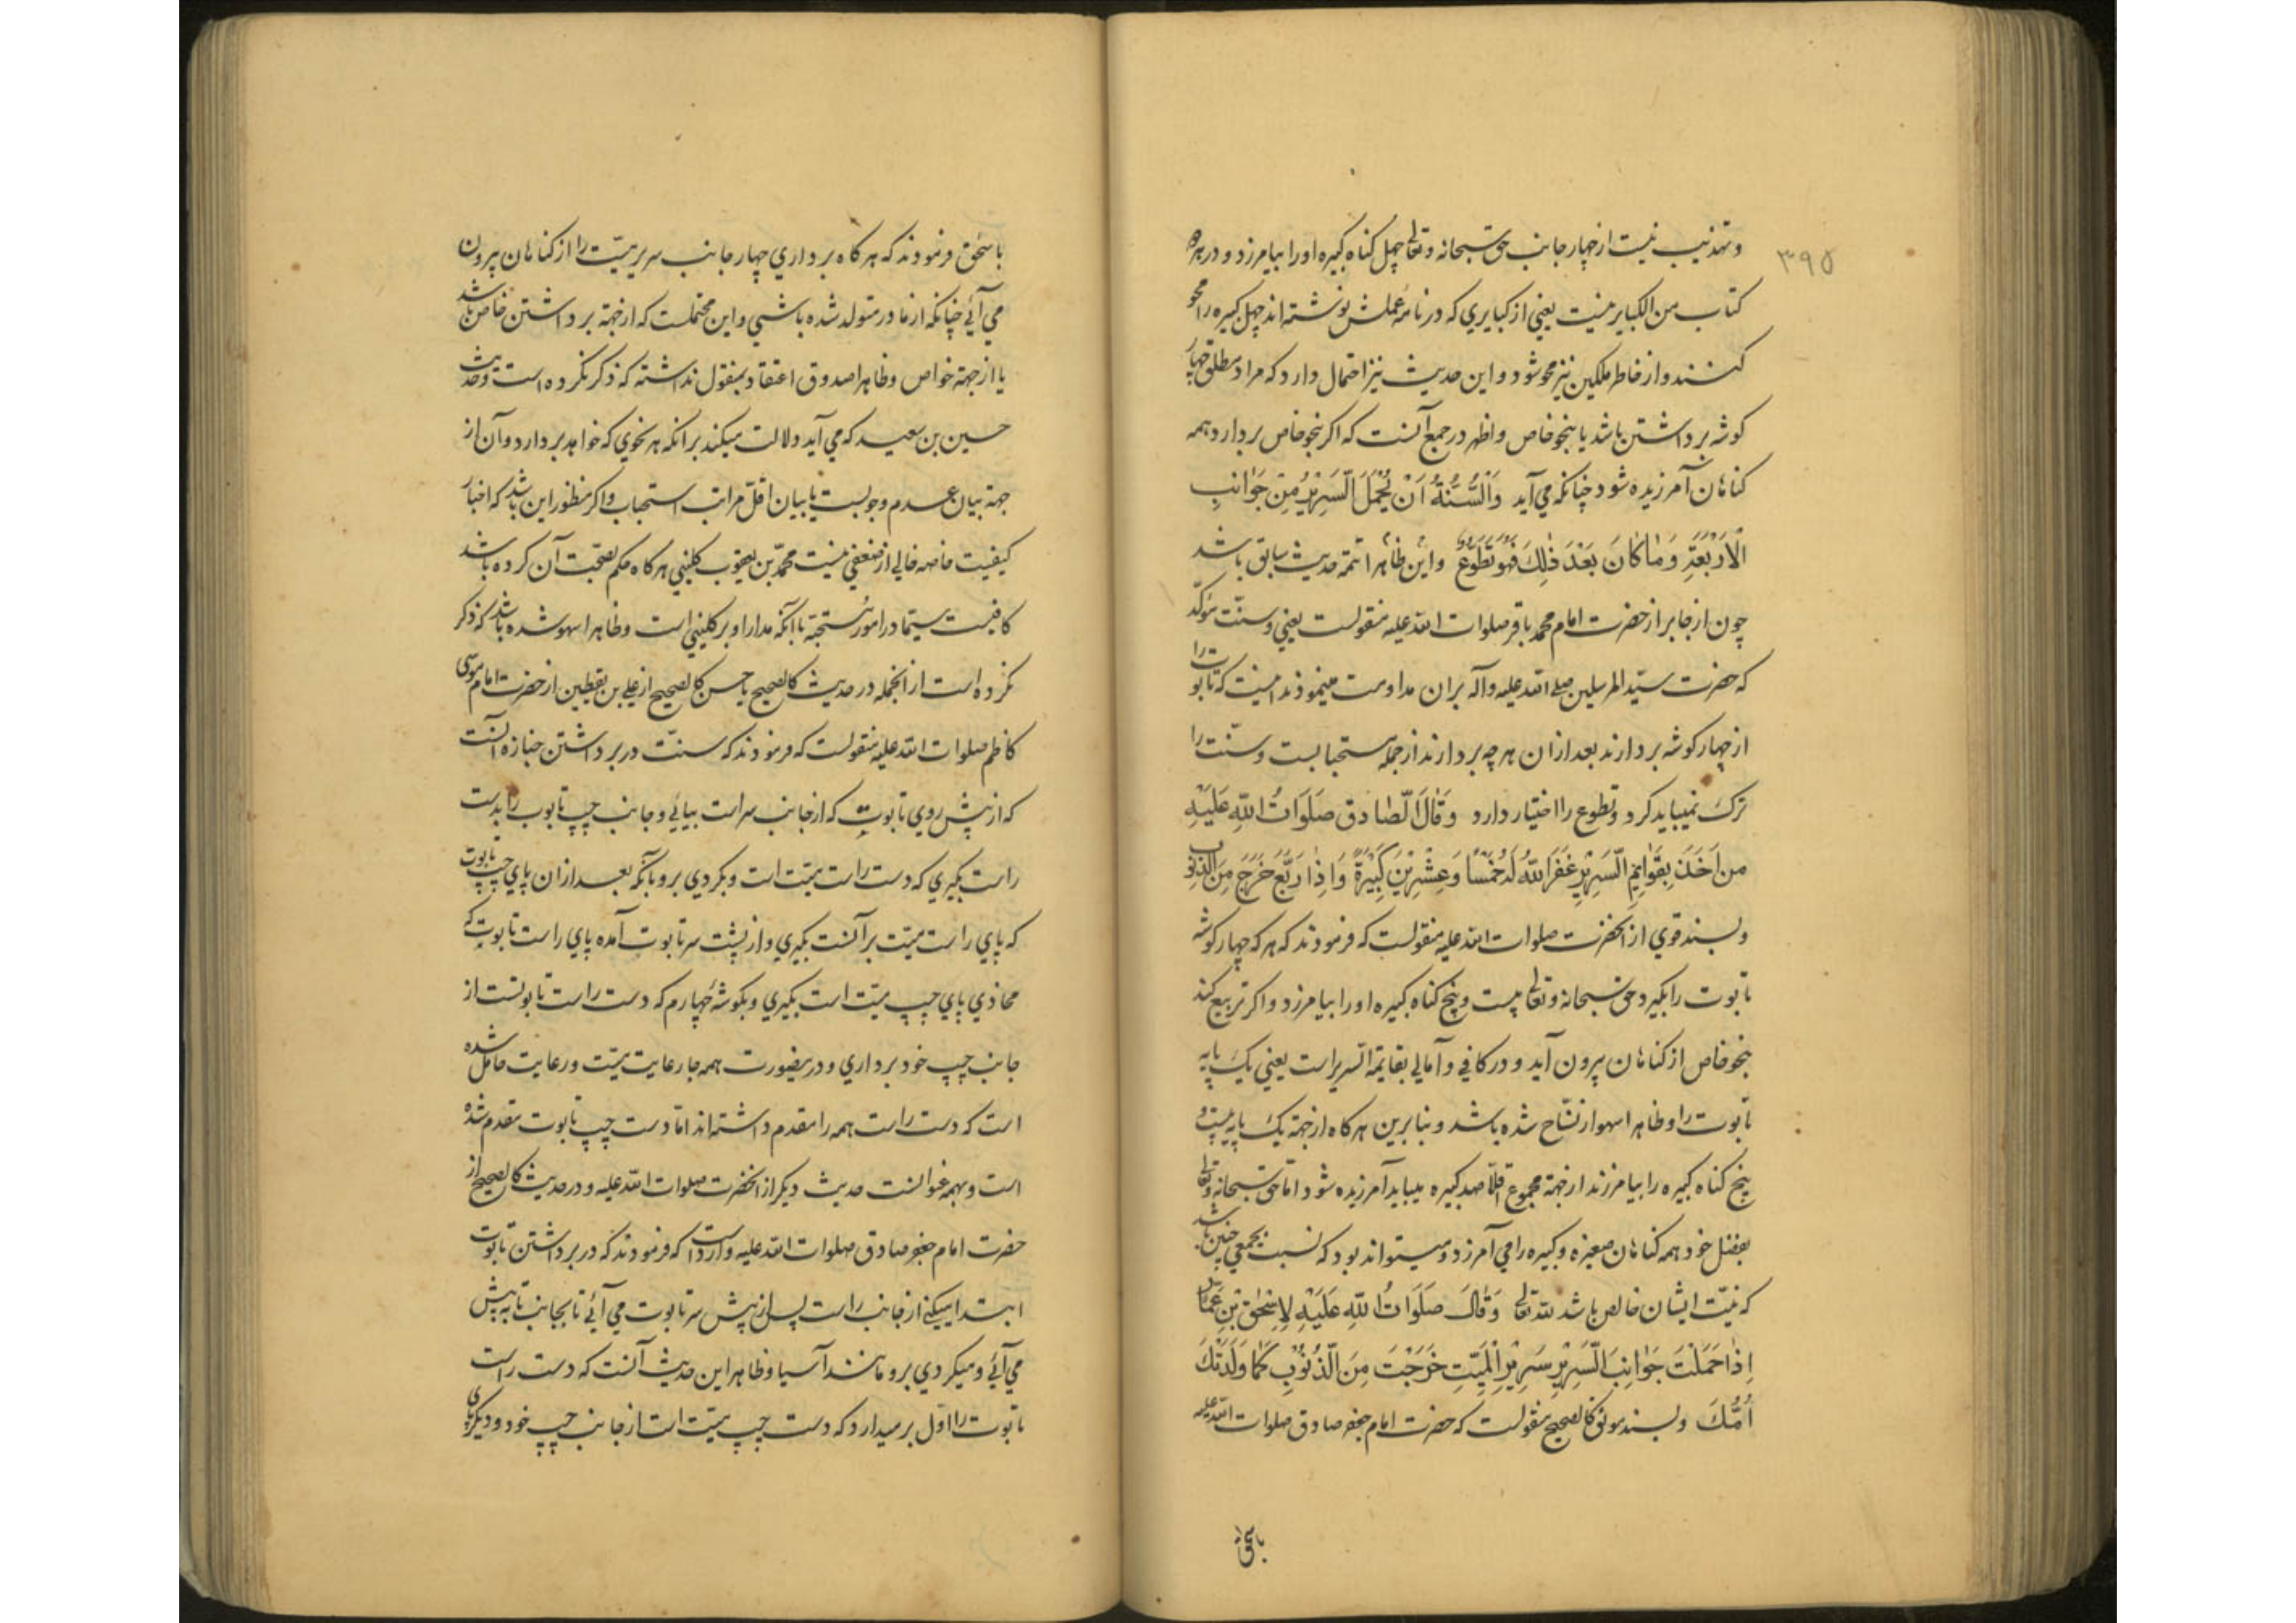 ۳۹۵
و تهذیب نیست از چهار جانب حق سبحانه و تعالی چهل کناه کبیره او را بیامرزد و در هر دو
کتاب من الکبایر نیست یعنی از کبایری که در نامه عملش نوشته اند چهل کبیره را محو
کنند و از خاطر ملکین نیز محو شود و این حدیث نیز احتمال دارد که مراد مطلق چهار
کوشه برداشتن باشد یا بنحو خاص و اظهر در جمع آنست که اکر بنحو خاص بردارد همه
کناهان آمرزیده شود چنانکه می آید وَالسُّنَّةُ اَنْ یُحْمَلَ السَّرِیْرُ مِنْ جَوَانِبِ
الْاَرْبَعَةِ وَمَا کَانَ بَعْدَ ذٰلِکَ فَهُوَ تَطَوُّعٌ و این ظاهرا تتمه حدیث سابق باشد
چون از جابر از حضرت امام محمد باقر صلوات الله علیه منقولست یعنی و سنّت موکّد
که حضرت سیّد المرسلین صلی الله علیه و آله بران مداومت مینمودند اینست که تابوت را
از چهار کوشه بردارند بعد ازان هر چه بردارند از جمله مستحبا بست و سنّت را
ترک نمیباید کرد و تطوع را اختیار دارد وَقَالَ الصَّادِق صَلَوَاتُ اللهِ عَلَیْهِ
من اَخَذَ بِقَوَایِمِ السَّرِیْرِ غَفَرَ اللهُ لَهُ خَمْسًا وَعِشْرِیْنَ کَبِیْرَةً وَاِذَا رَبَّعَ خَرَجَ مِنَ الذُّنُوْبِ
و بسند قوی از آنحضرت صلوات الله علیه منقولست که فرمودند که هر که چهار کوشه
تابوت را بکیرد حق سبحانه و تعالی بیست و پنج کناه کبیره او را بیامرزد و اکر تربیع کند
بنحو خاص از کناهان بیرون آید و در کافی و آمالی بقایمة السریر است یعنی یک پایه
تابوت را و ظاهرا سهو از نسّاخ شده باشد و بنا برین هر کاه از جهة یک پایه بیست و
پنج کناه کبیره را بیامرزند از جهة مجموع اقلّا صد کبیره میباید آمرزیده شود امّا حق سبحانه و تعالی
بفضل خود همه کناهان صغیره و کبیره را می آمرزد و میتواند بود که نسبت بجمعی چنین باشد
که نیّت ایشان خالص باشد لله تعالی وَقَالَ صَلَوَاتُ اللهِ عَلَیْهِ لِاِسْحٰقَ بْنِ عَمَّارٍ
اِذَا حَمَلْتَ جَوَانِبَ السَّرِیْرِ سَرِیْرِ الْمَیِّتِ خَرَجْتَ مِنَ الذُّنُوْبِ کَمَا وَلَدَتْکَ
اُمُّکَ و بسند موثق کالصحیح منقولست که حضرت امام جعفر صادق صلوات الله علیه
باسحٰق
باسحٰق فرمودند که هر کاه برداری چهار جانب سریر میّت را از کناهان بیرون
می آئی چنانکه از مادر متولد شده باشی و این محتملست که از جهة برداشتن خاص باشد
یا از جهة خواص و ظاهرا صدوق اعتقاد بمنقول نداشته که ذکر نکرده است و حدیث
حسین بن سعید که می آید دلالت میکند بر انکه هر نحوی که خواهد بردارد و آن از
جهة بیان عدم وجوبست یا بیان اقلّ مراتب استحباب و اکر منظور این باشد که اخبار
کیفیت خاصه خالی از ضعفی نیست محمّد بن یعقوب کلینی هر کاه حکم بصحّت آن کرده باشد
کافیست سیّما در امور مستحبّه با آنکه مدار او بر کلینی است و ظاهرا سهو شده باشد که ذکر
نکرده است از انجمله در حدیث کالصحیح یا حسن کالصحیح از علی بن یقطین از حضرت امام موسی
کاظم صلوات الله علیه منقولست که فرمودند که سنّت در برداشتن جنازه آنست
که از پیش روی تابوت که از جانب سر است بیائی و جانب چپ تابوب را بدست
راست بکیری که دست راست میّت است و بکردی برو بآنکه بعد ازان پای چپ تابوت
که پای راست میّت بر آنست بکیری و از پشت سر تابوت آمده پای راست تابوت که
محاذی پای چپ میّت است بکیری و بکوشه چهارم که دست راست تابوتست از
جانب چپ خود برداری و درینصورت همه جا رعایت میّت و رعایت حامل شده
است که دست راست همه را مقدم داشته اند امّا دست چپ تابوت مقدم شده
است و بهمه عنوانست حدیث دیکر از آنحضرت صلوات الله علیه و در حدیث کالصحیح از
حضرت امام جعفر صادق صلوات الله علیه وارد است که فرمودند که در برداشتن تابوت
ابتدا میکنی از جانب راست پس از پیش سر تابوت می آئی تا بجانب تا به پیش
می آئی و میکردی برو مانند آسیا و ظاهر این حدیث آنست که دست راست
تابوت را اوّل برمیدارد که دست چپ میّت است از جانب چپ خود و دیکر پای